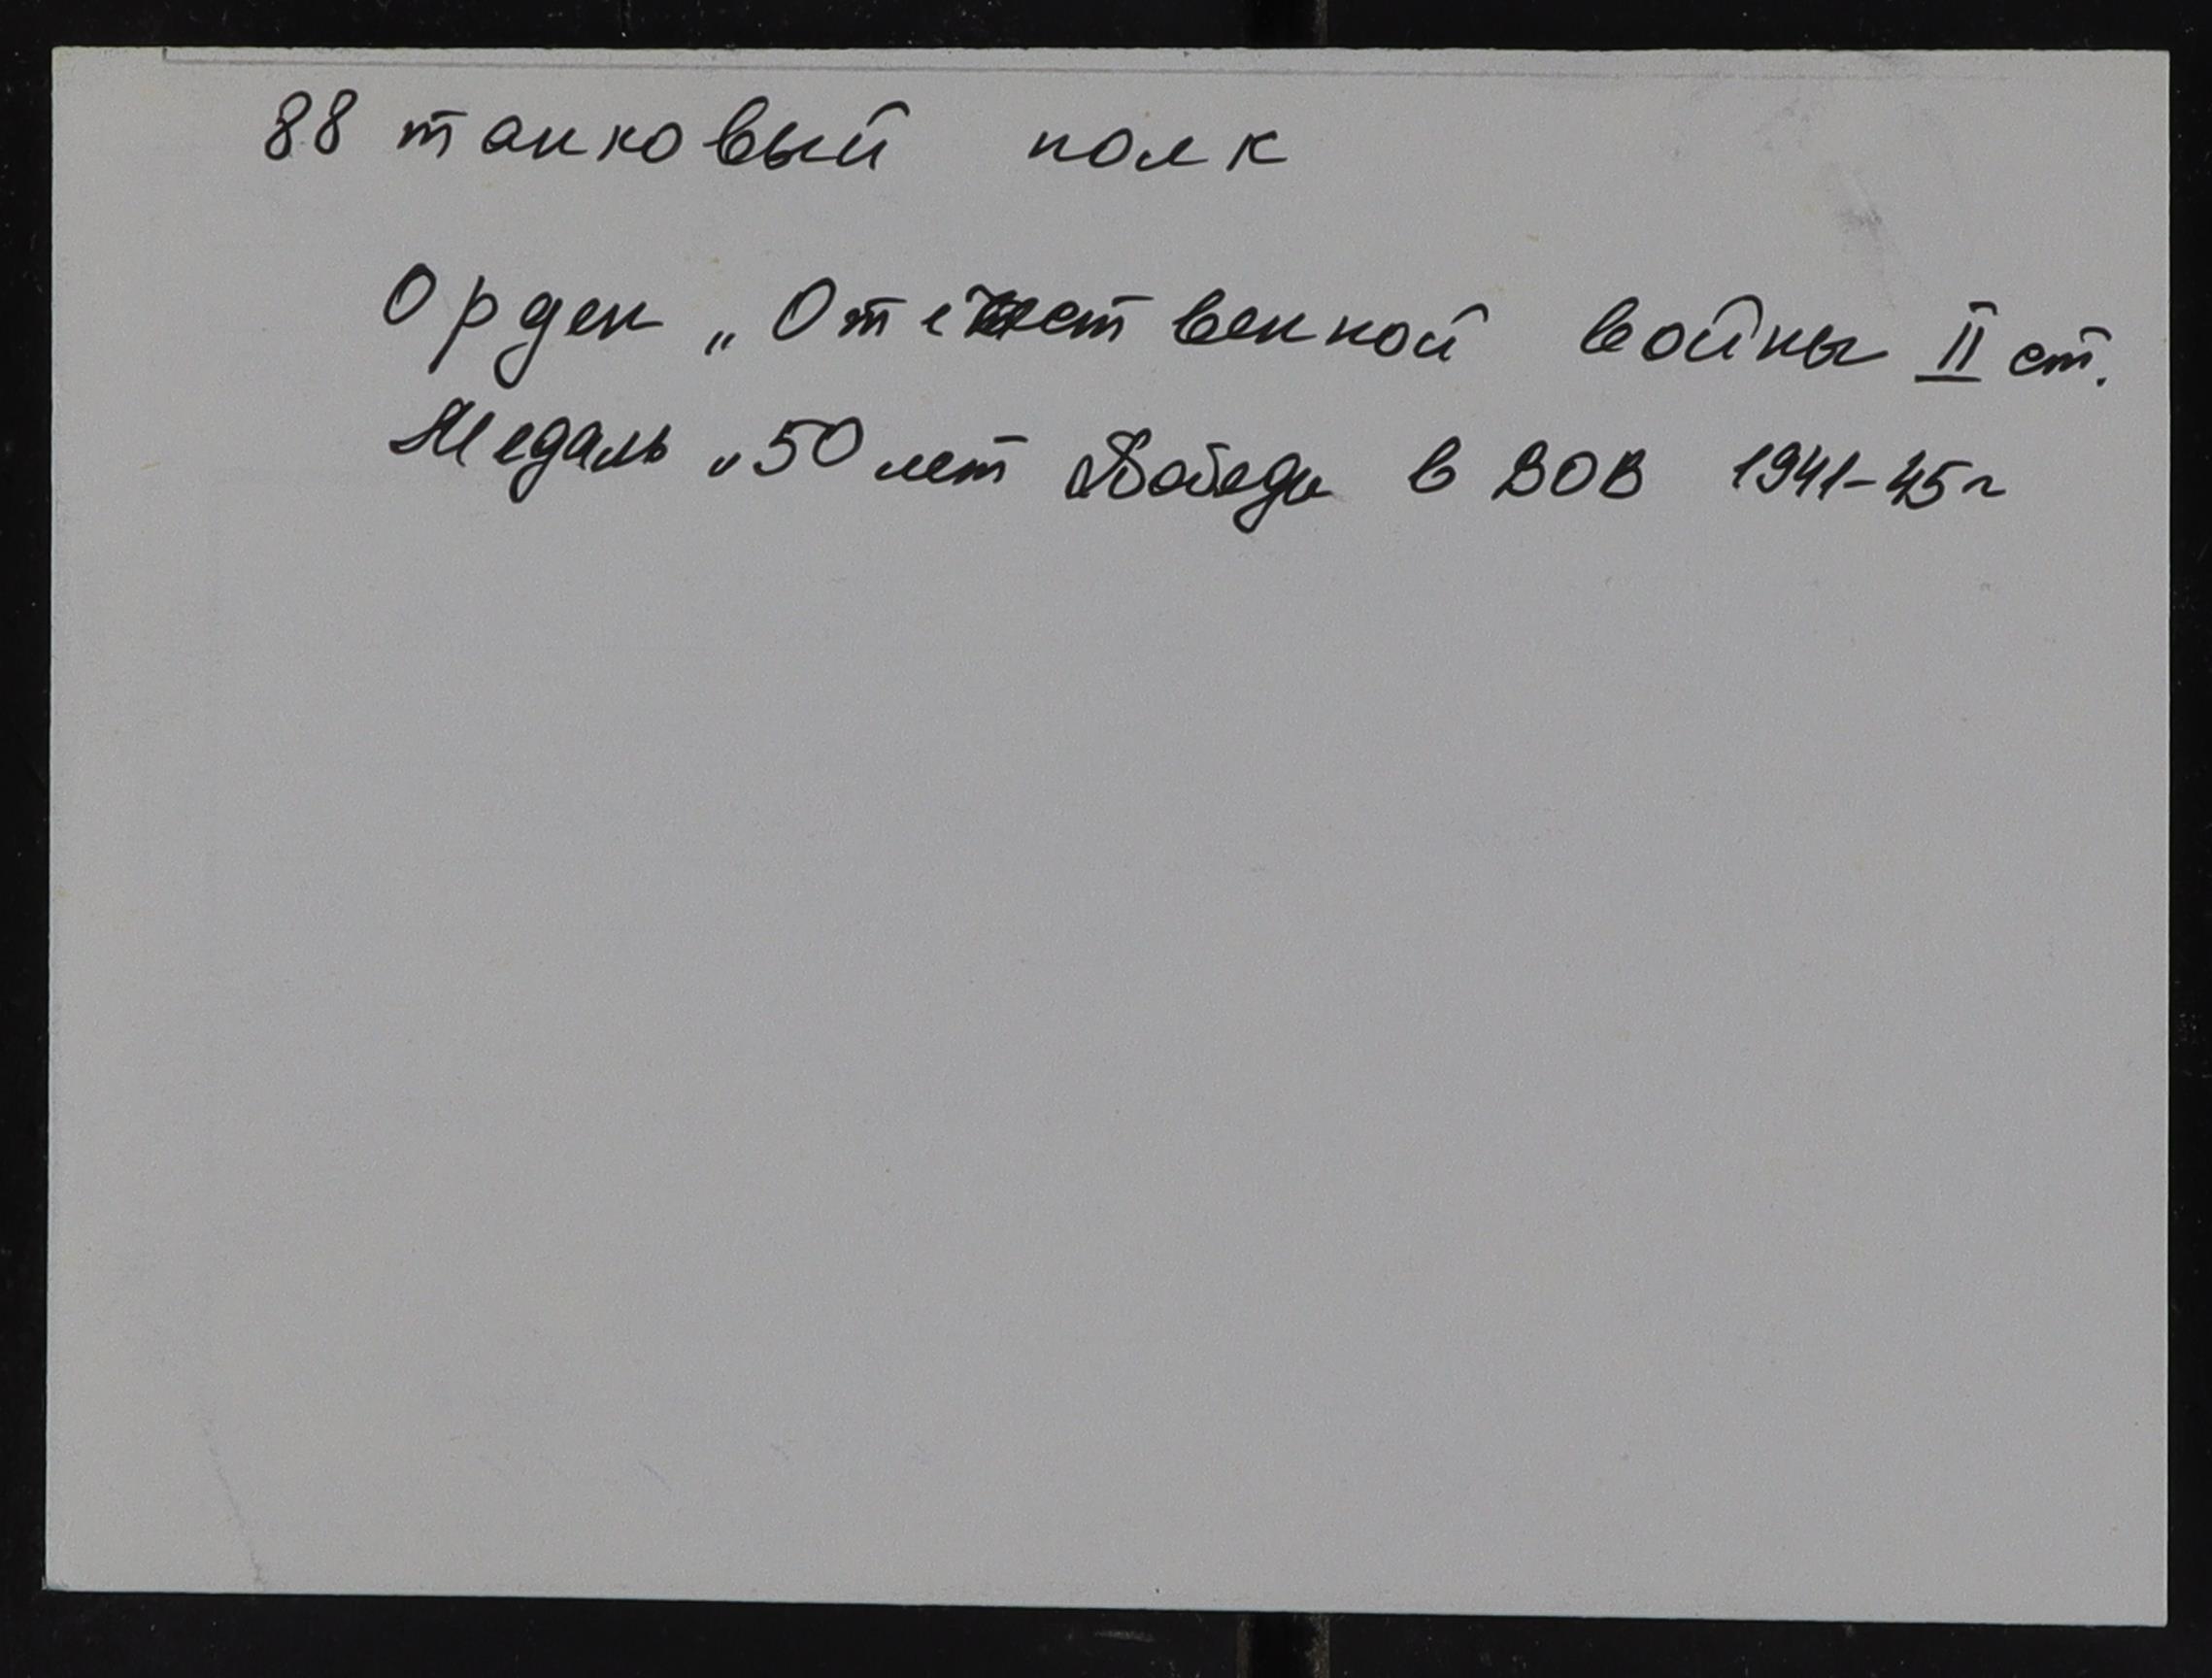 88 танковый полк
Орден „Отечественной войны II ст.
Медаль „50 лет Победы в ВОВ 1941-45г